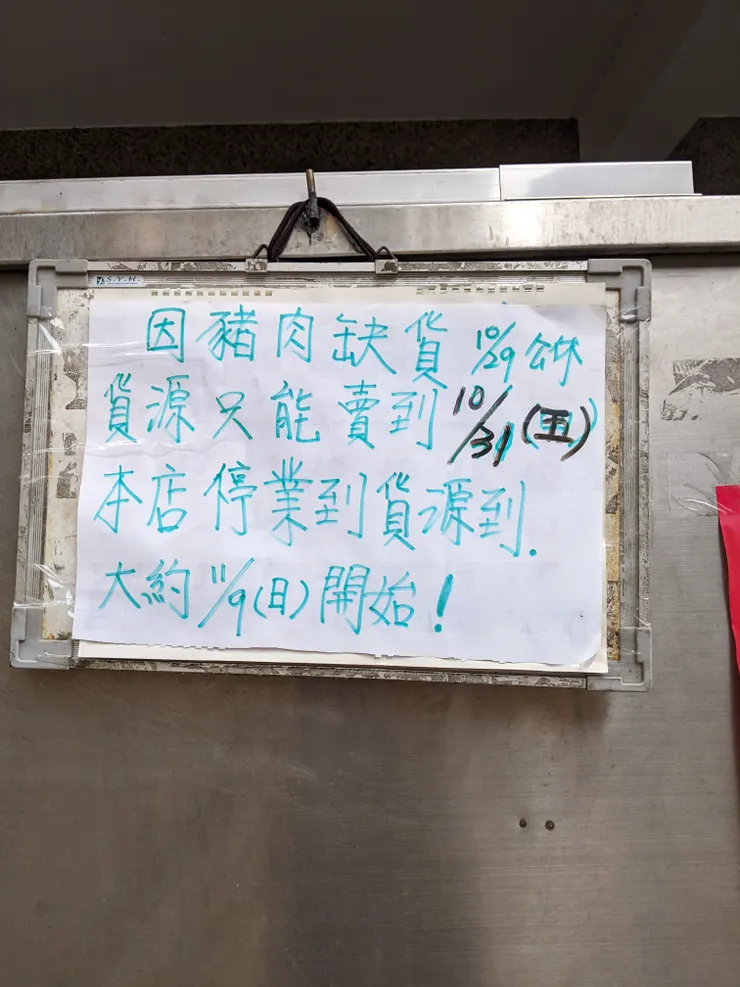 S.Y.H.
因豬肉缺貨 10/29 公休
貨源只能賣到 10/31 (五)
本店停業到貨源到.
大約 11/9 (日) 開始!